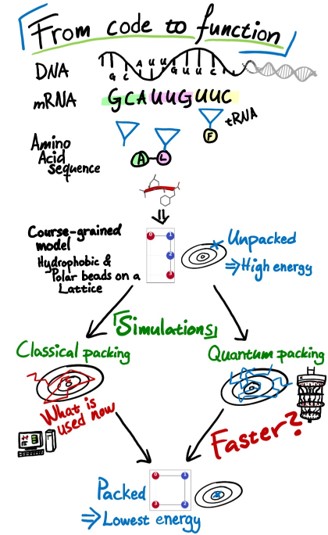 From code to function
DNA
G C A U U G U U C
mRNA
GCAUUGUUC
tRNA
F
Amino
Acid
sequence
A-L
Course-grained
model
Hydrophobic &
Polar beads on a
Lattice
Unpacked
⇒ High energy
Simulations
Classical packing
Quantum packing
What is
used now
Faster?
Packed
⇒ Lowest energy